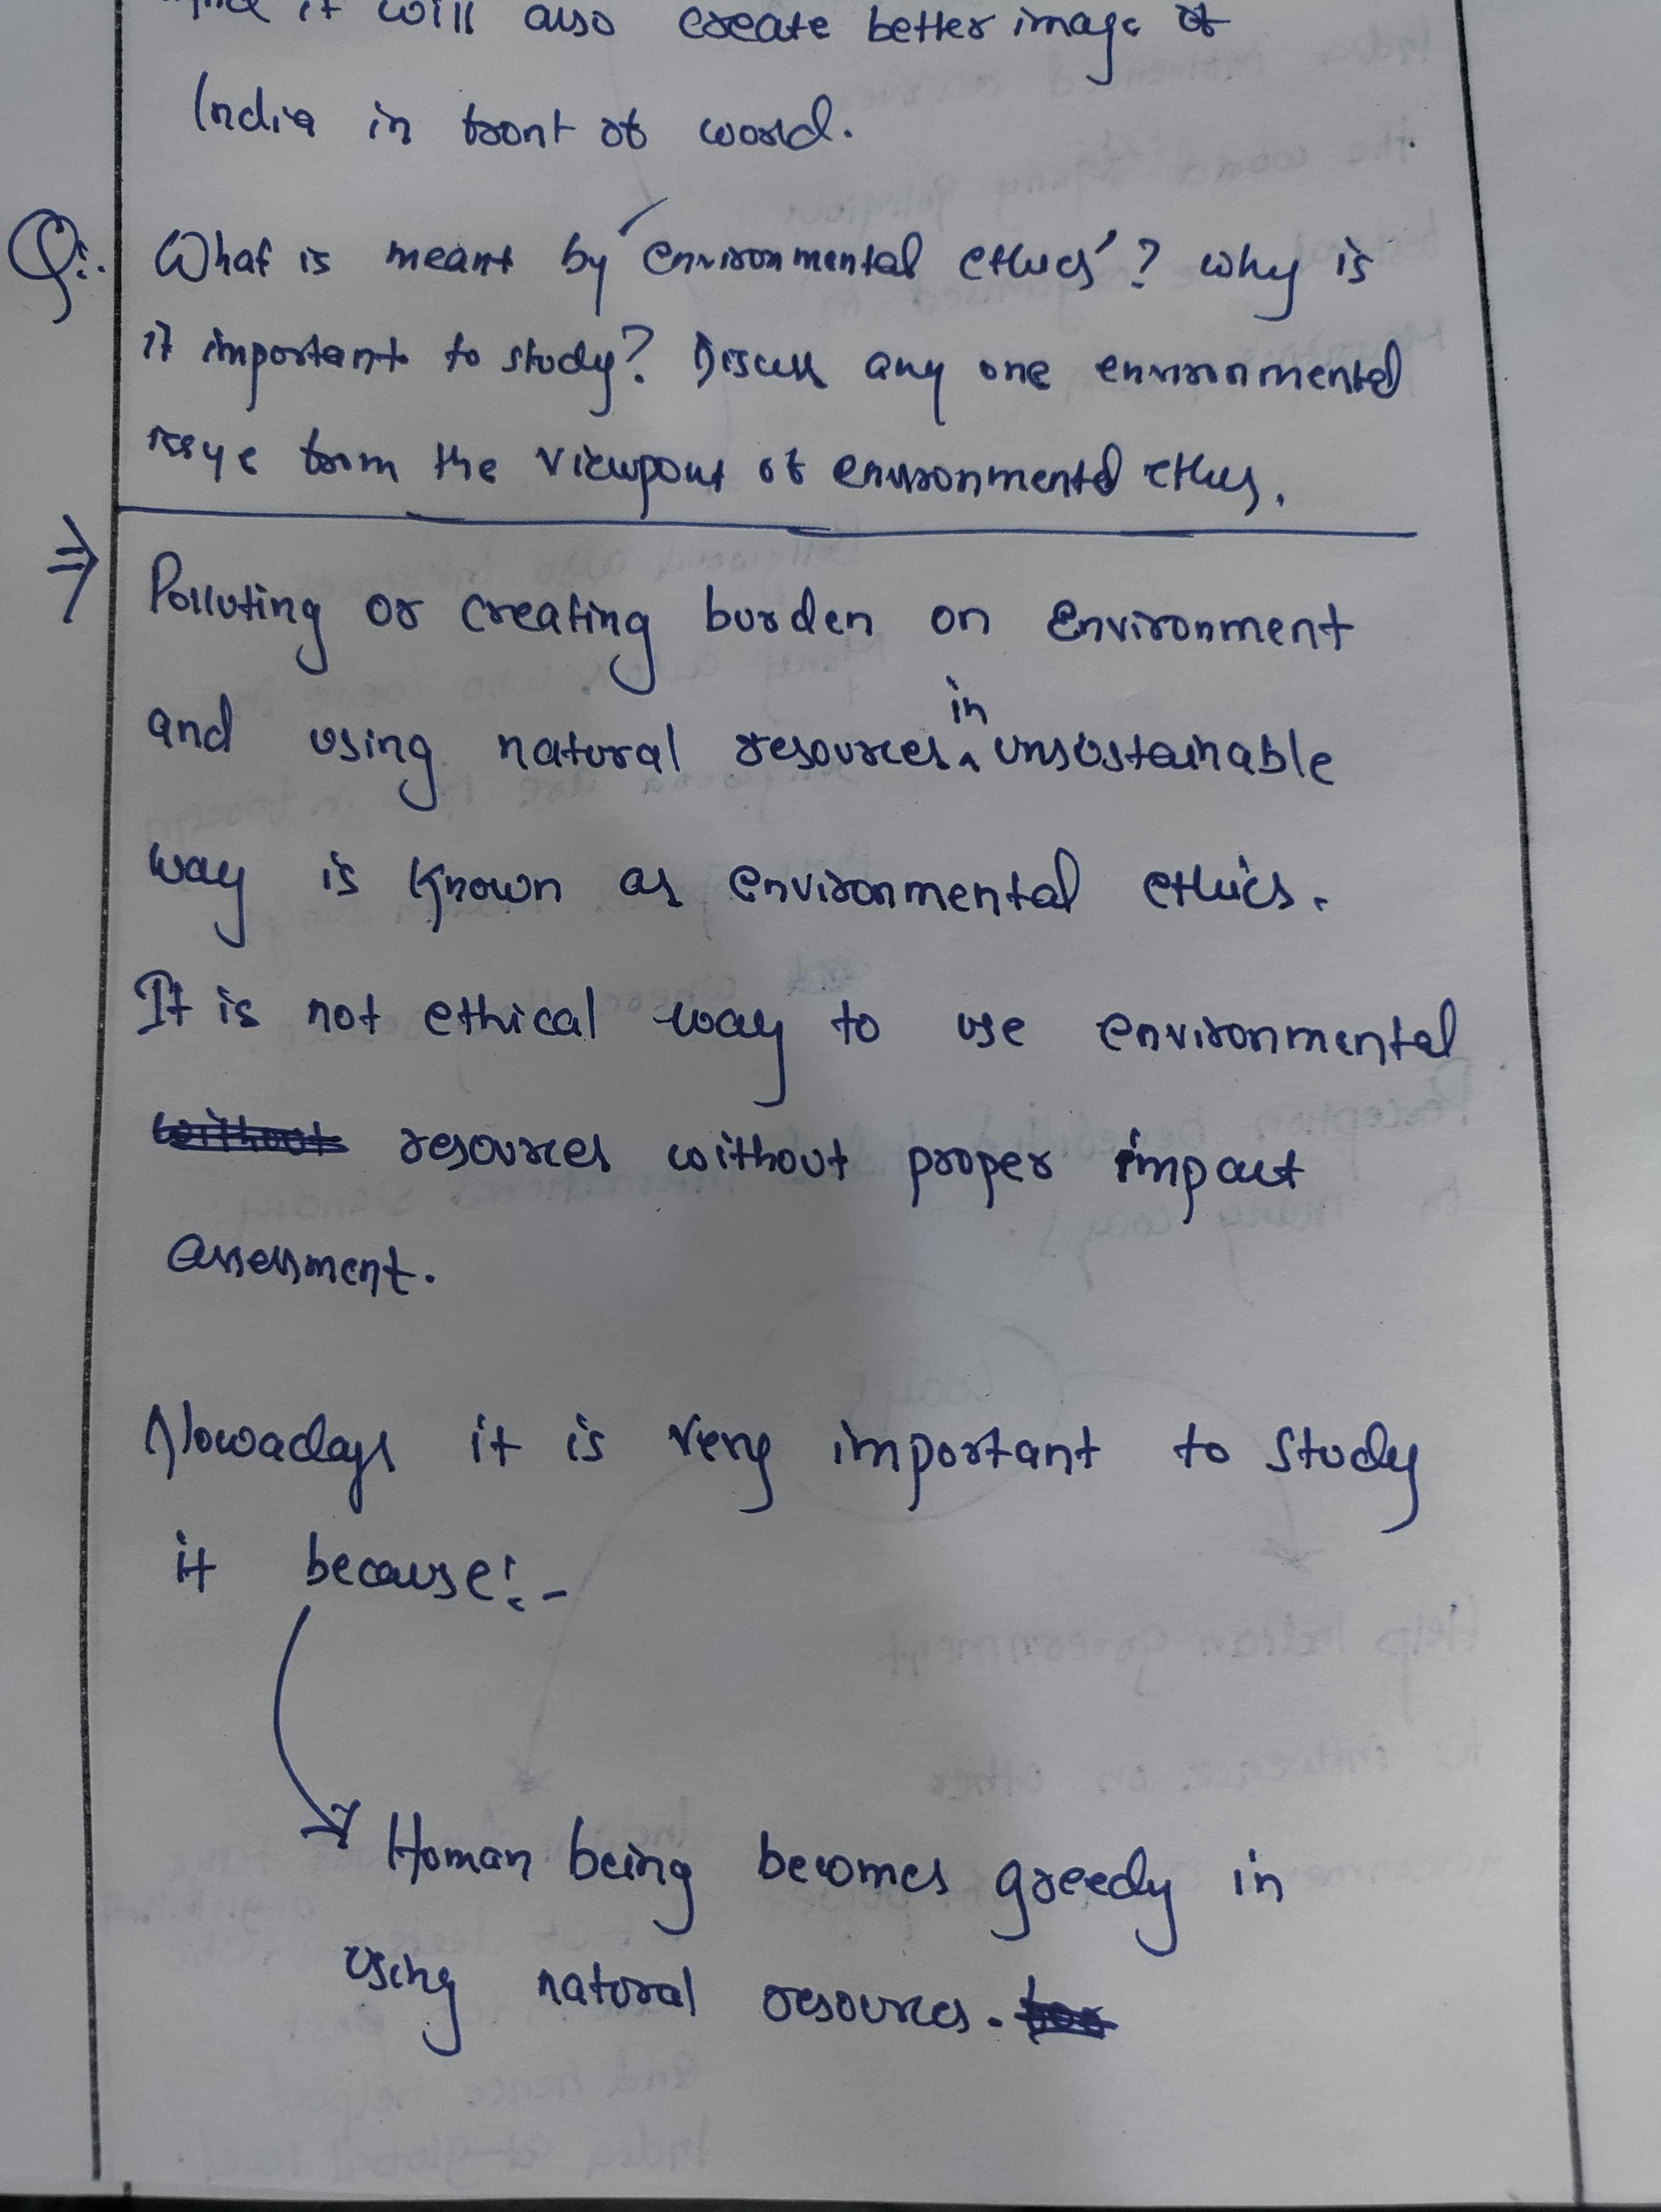 it will also create better image of
India in front of world.
Q:. What is meant by 'environmental ethics'? Why is
it important to study? Discuss any one environmental
issue from the viewpoint of environmental ethics.
⇒ Polluting or creating burden on Environment
and using natural resources in unsustainable
way is known as environmental ethics.
It is not ethical way to use environmental
without resources without proper impact
assessment.
Nowadays it is very important to study
it because:-
→ Human being becomes greedy in
using natural resources.